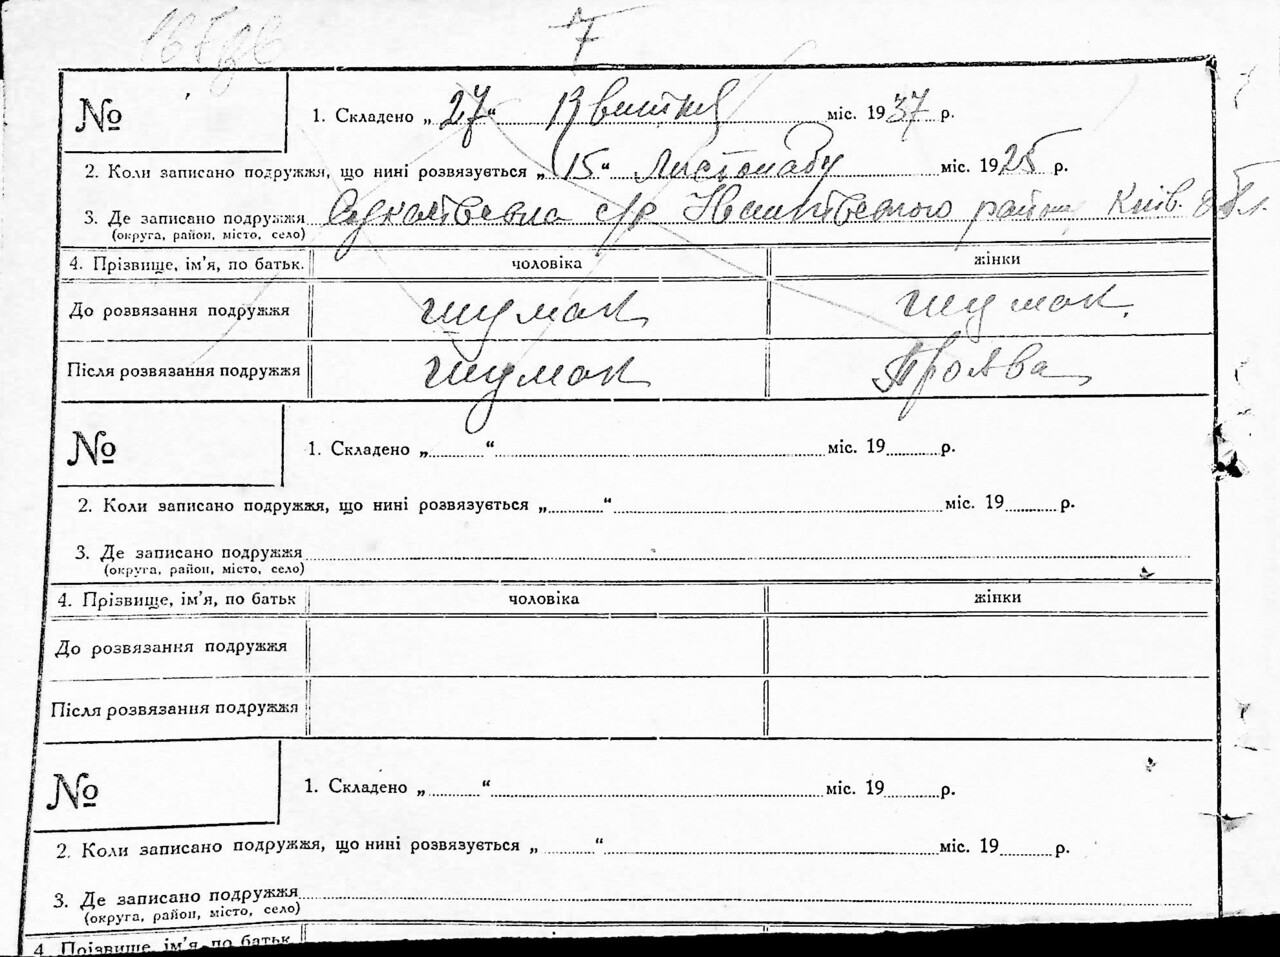 7
№
1. Складено „ 27 “ Квітня міс. 1937 р.
2. Коли записано подружжя, що нині розвязується „ 15 “ Листопаду міс. 1925 р.
3. Де записано подружжя с/р району Київ. обл.
(округа, район, місто, село)
4. Прізвище, ім’я, по батьк. чоловіка жінки
До розвязання подружжя Шумак Шумак.
Після розвязання подружжя Шумак Проява
№
1. Складено „ “ міс. 19 р.
2. Коли записано подружжя, що нині розвязується „ “ міс. 19 р.
3. Де записано подружжя
(округа, район, місто, село)
4. Прізвище, ім’я, по батьк чоловіка жінки
До розвязання подружжя
Після розвязання подружжя
№
1. Складено „ “ міс. 19 р.
2. Коли записано подружжя, що нині розвязується „ “ міс. 19 р.
3. Де записано подружжя
(округа, район, місто, село)
4 Прізвище, ім’я, по батьк.